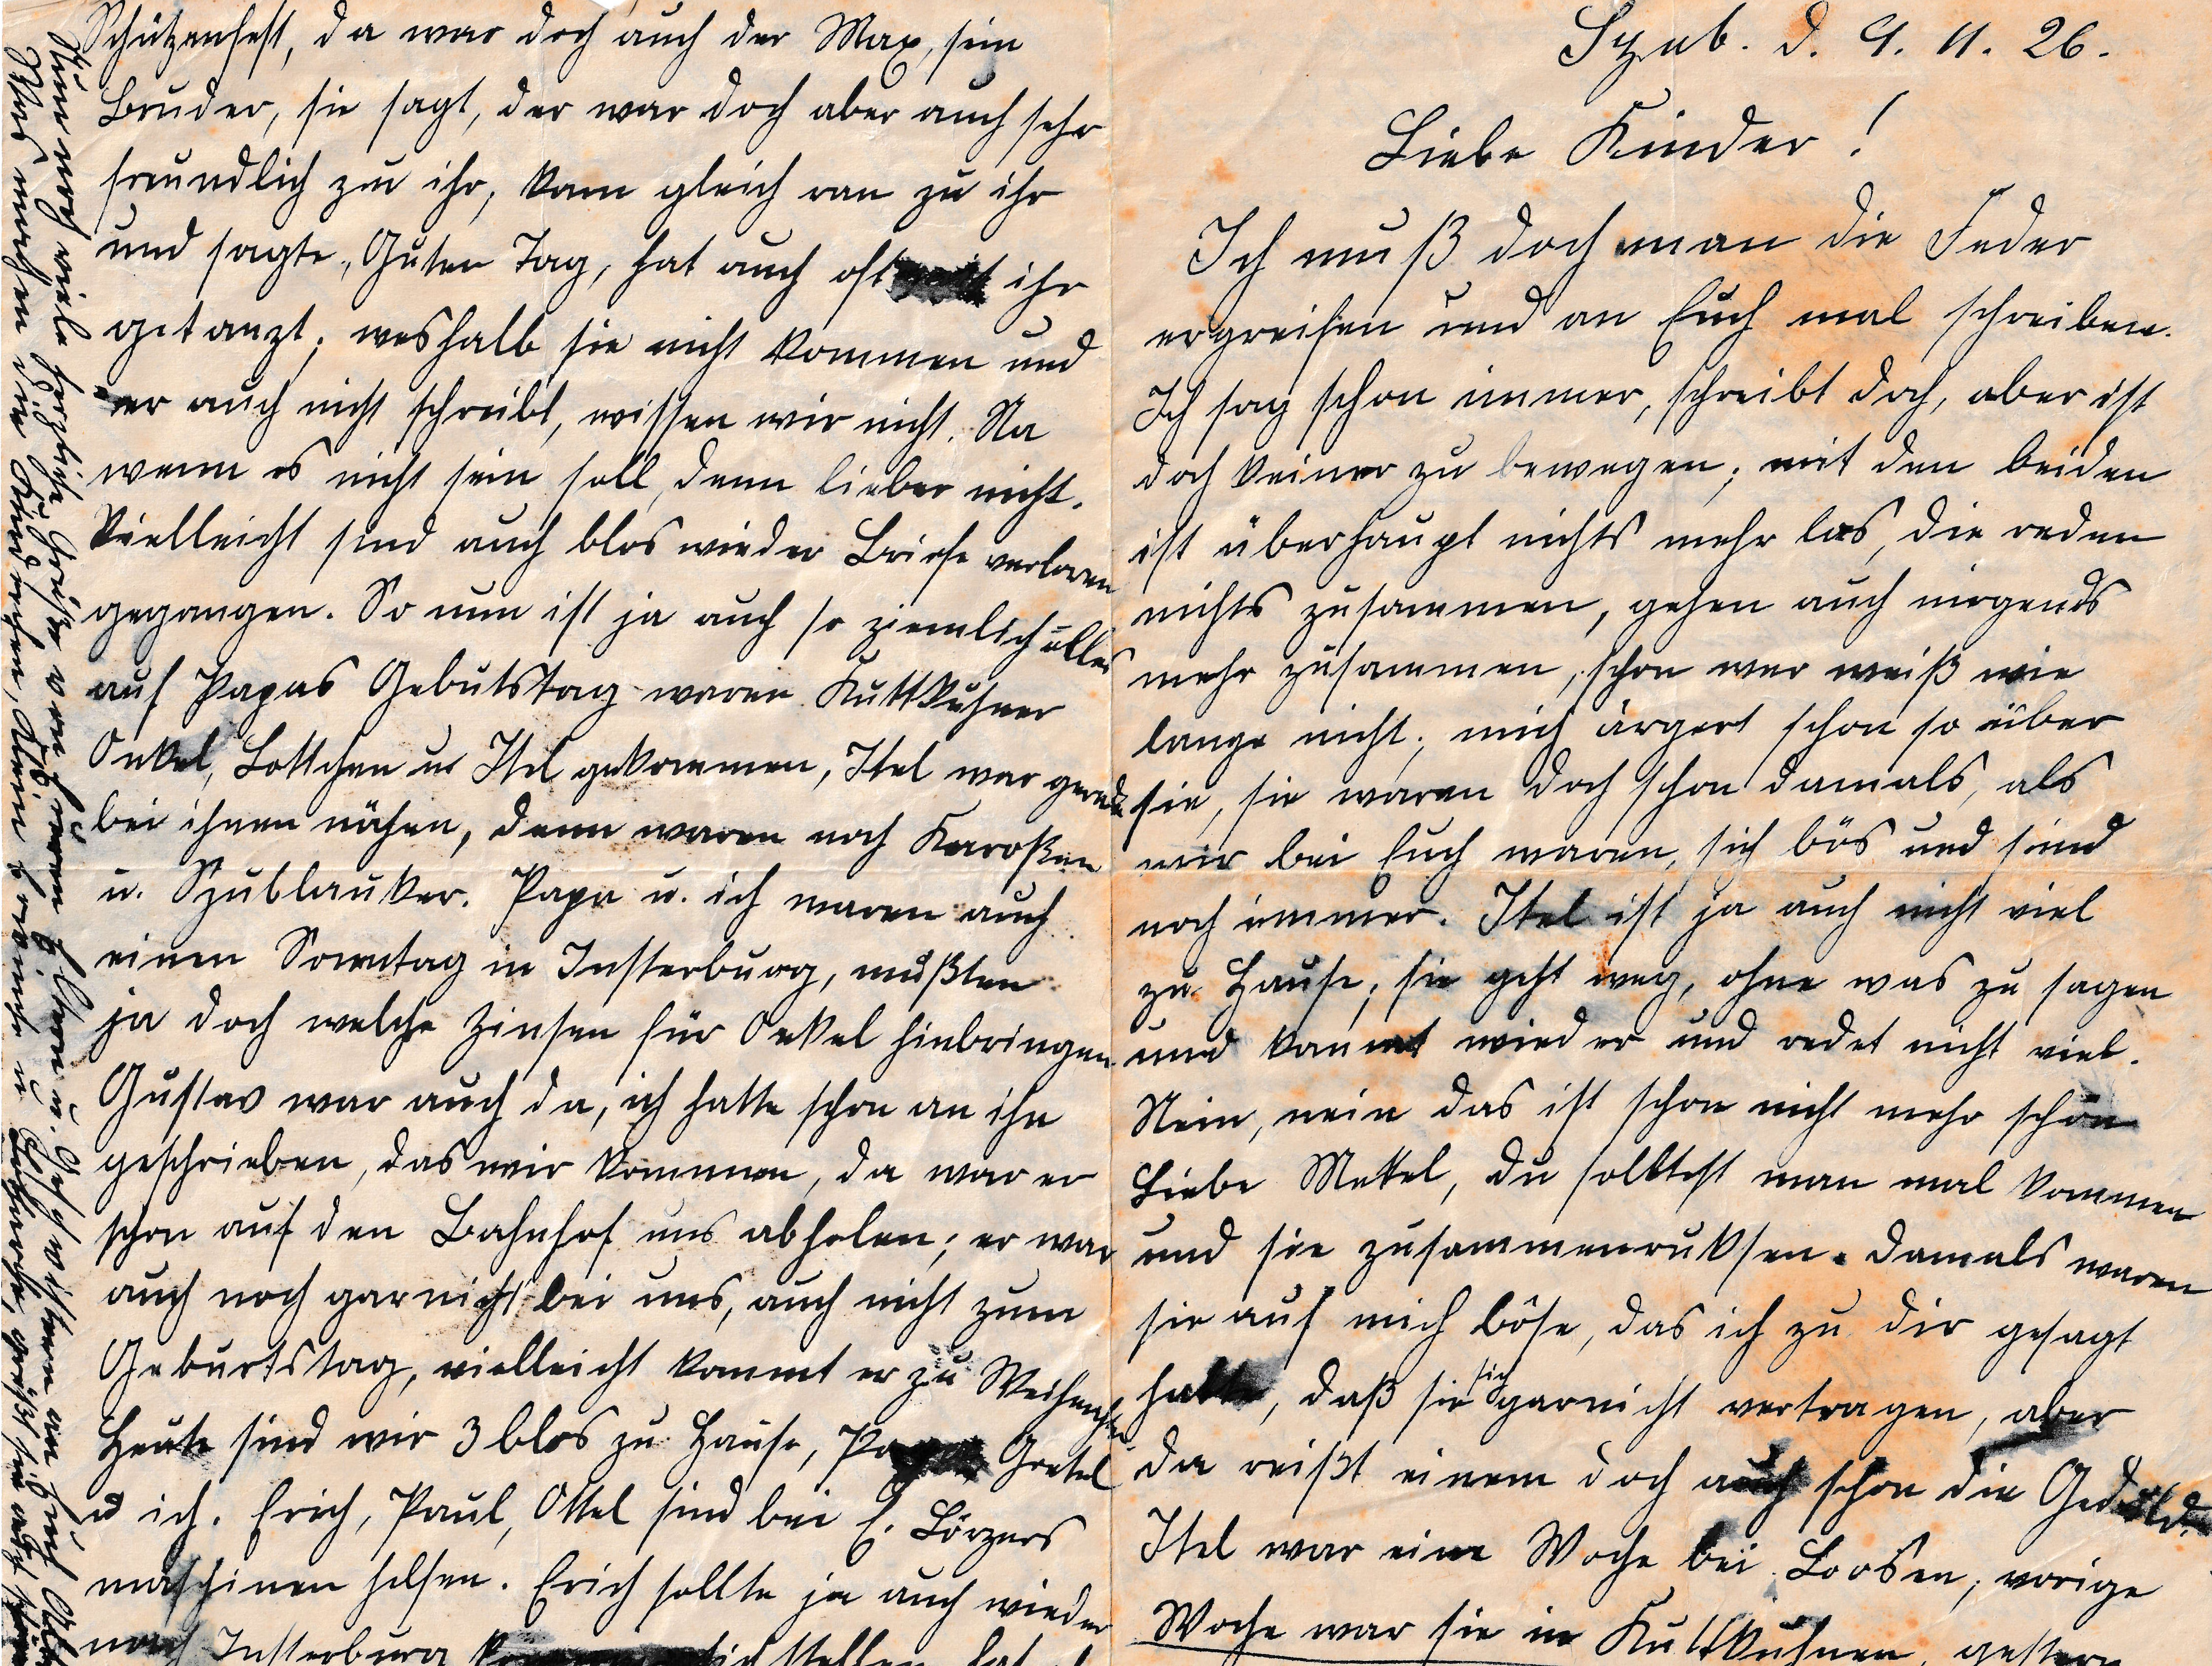 Szub. d. 9. 11. 26.
Liebe Kinder!
Ich muß doch man die Feder
ergreifen und an Euch mal schreiben.
Ich sag schon immer, schreibt doch, aber ist
doch keiner zu bewegen; mit den beiden
ist überhaupt nichts mehr los, die reden
nichts zusammen, gehen auch nirgends
mehr zusammen, schon wer weiß wie
lange nicht; mich ärgert schon so über
sie, sie waren doch schon damals, als
wir bei Euch waren, sich bös und sind
noch immer. Itel ist ja auch nicht viel
zu Hause; sie geht weg, ohne was zu sagen
und kommt wieder und redet nicht viel.
Nein, nein das ist schon nicht mehr schön
Liebe Mettel, du solltest man mal kommen
und sie zusammenruksen. Damals waren
sie auf mich böse, das ich zu dir gesagt
hatte, daß sie sich garnicht vertragen, aber
da reißt einem doch auch schon die Geduld.
Itel war eine Woche bei Loosen, vorige
Woche war sie in Kuttkuhnen, gestern
Schützenfest, da war doch auch der Max, sein
Bruder, sie sagt, der war doch aber auch sehr
freundlich zu ihr, kam gleich ran zu ihr
und sagte, Guten Tag, hat auch oft mit ihr
getanzt; weshalb sie nicht kommen und
er auch nicht schreibt, wissen wir nicht. Na
wenn es nicht sein soll, denn lieber nicht.
Vielleicht sind auch blos wieder Briefe verloren
gegangen. So nun ist ja auch so ziemlich alles
auf Papas Gebutstag waren Kuttkuhner
Onkel, Lottchen u. Itel gekommen, Itel war gerade
bei ihnen nähen, denn waren noch Karoßen
u. Szublauker. Papa u. ich waren auch
einen Sonntag in Insterburg, mußten
ja doch welche Zinsen für Onkel hinbringen.
Gustav war auch da, ich hatte schon an ihn
geschrieben, das wir kommen, da war er
schon auf den Bahnhof uns abholen; er war
auch noch garnicht bei uns, auch nicht zum
Geburtstag, vielleicht kommt er zu Weihnachten
Heute sind wir 3 blos zu Hause, Papa Gretel
u ich. Erich, Paul, Ottel sind bei E. Lörzers
maschinen helfen. Erich sollte ja auch wieder
nach Insterburg sich stellen, hat
Nun noch viele herzliche Grüße von Euren Eltern u. Geschwistern an Euch
Was machen die Kinderchen, Klein